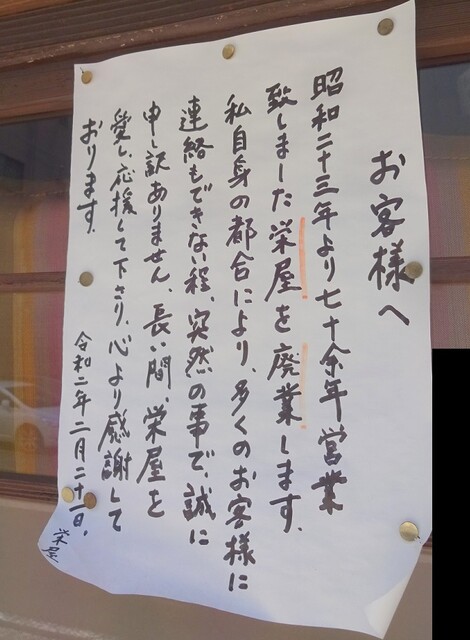 お客様へ
昭和二十三年より七十余年営業
致しました栄屋を廃業します。
私自身の都合により、多くのお客様に
連絡もできない程、突然の事で、誠に
申し訳ありません、長い間、栄屋を
愛し、応援して下さり、心より感謝して
おります。
令和二年二月二十一日、
栄屋